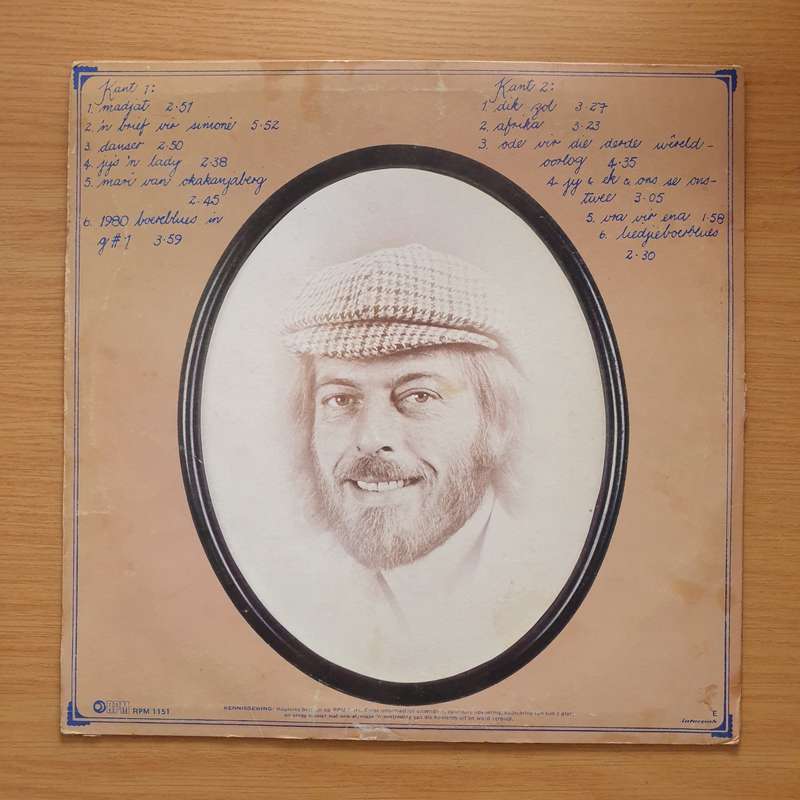 Kant 1:
1. madjat 2·51
2. 'n brief vir simoné 5·52
3. danser 2·50
4. jy's 'n lady 2·38
5. mari van okakanjaberg
2·45
6. 1980 boereblues in
g#1 3·59
Kant 2:
1. dik zol 3·27
2. afrika 3·23
3. ode vir die derde wêreld-
oorlog 4·35
4. jy & ek & ons se ons-
twee 3·05
5. vra vir ena 1·58
6. liedjieboerblues
2·30
RPM RPM 1151
KENNISGEWING:
E
interpak